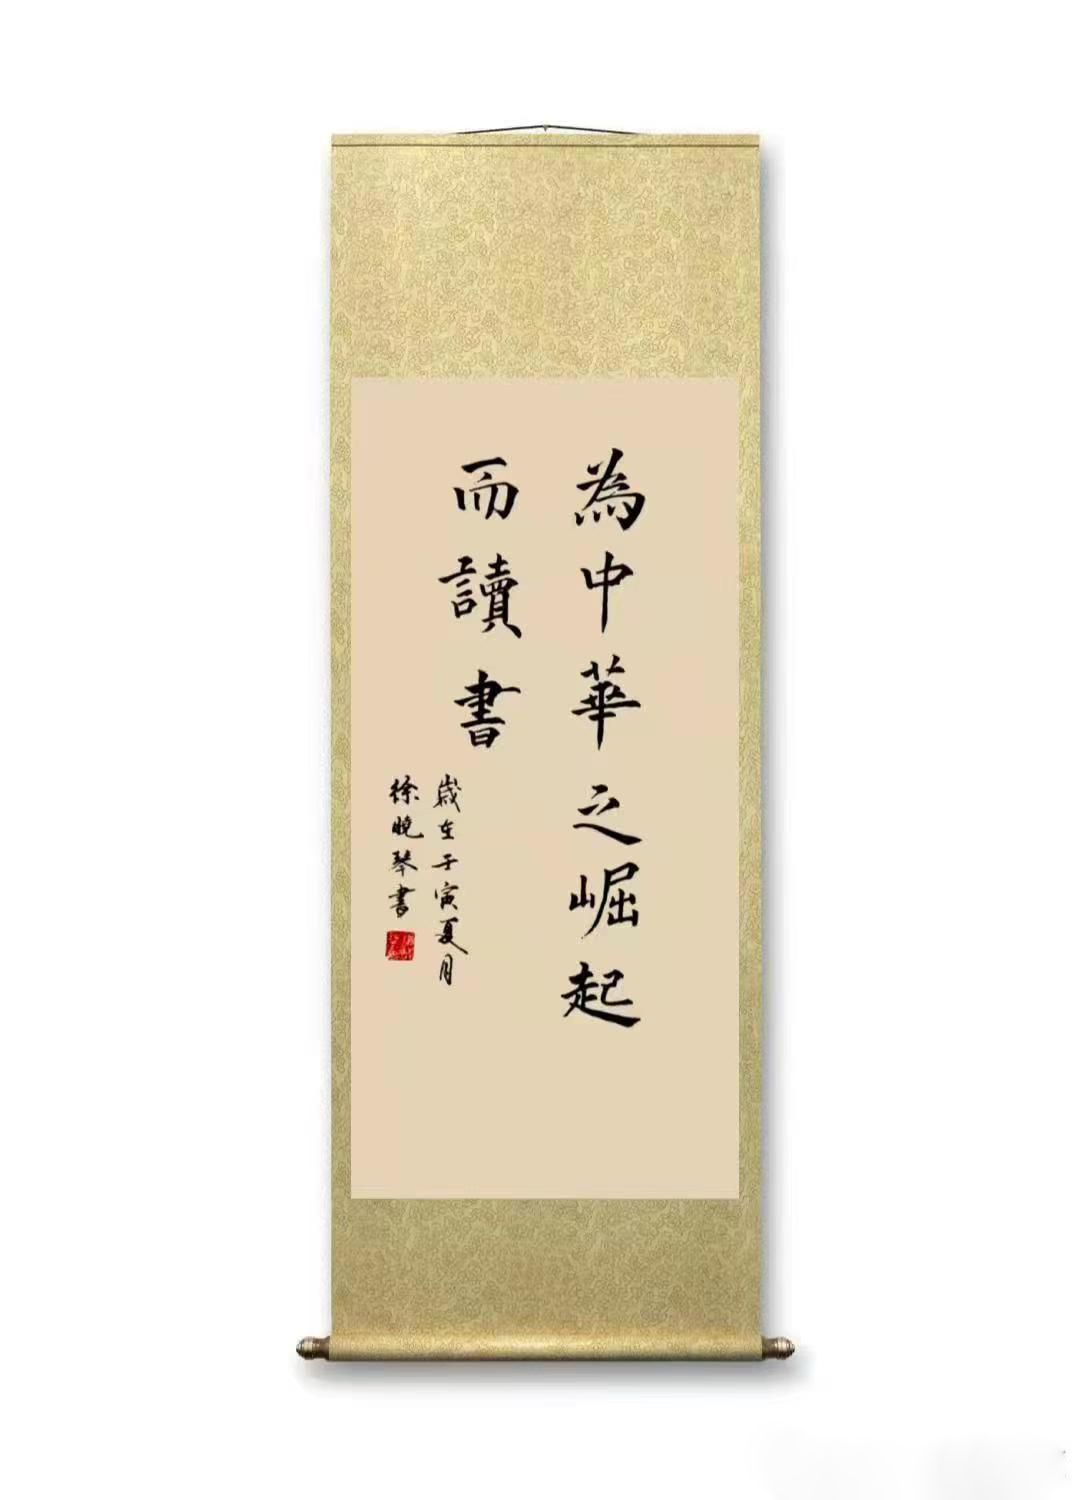 為中華之崛起
而讀書
歲在壬寅夏月
徐曉琴書